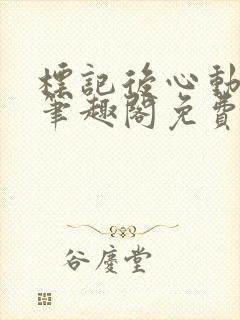 標記後心動
筆趣閣免費
谷慶堂